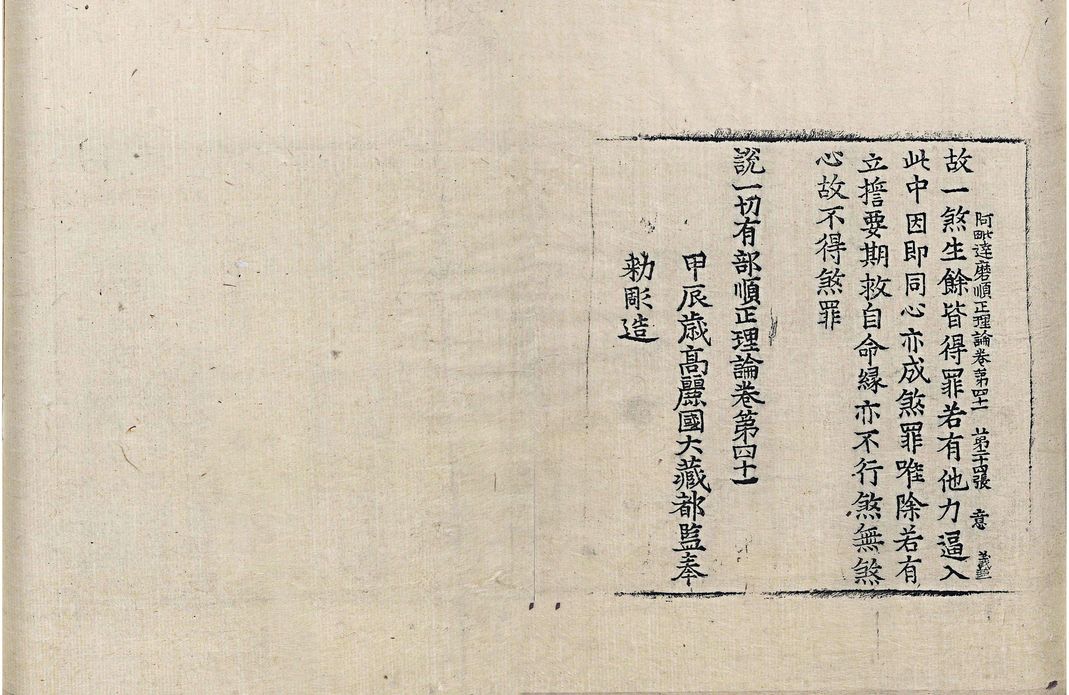 阿毗達磨順正理論卷第四十一 第二十四張 意
故一煞生餘皆得罪若有他力逼入
此中因即同心亦成煞罪唯除若有
立誓要期救自命緣亦不行煞無煞
心故不得煞罪
說一切有部順正理論卷第四十一
甲辰歲高麗國大藏都監奉
勅彫造